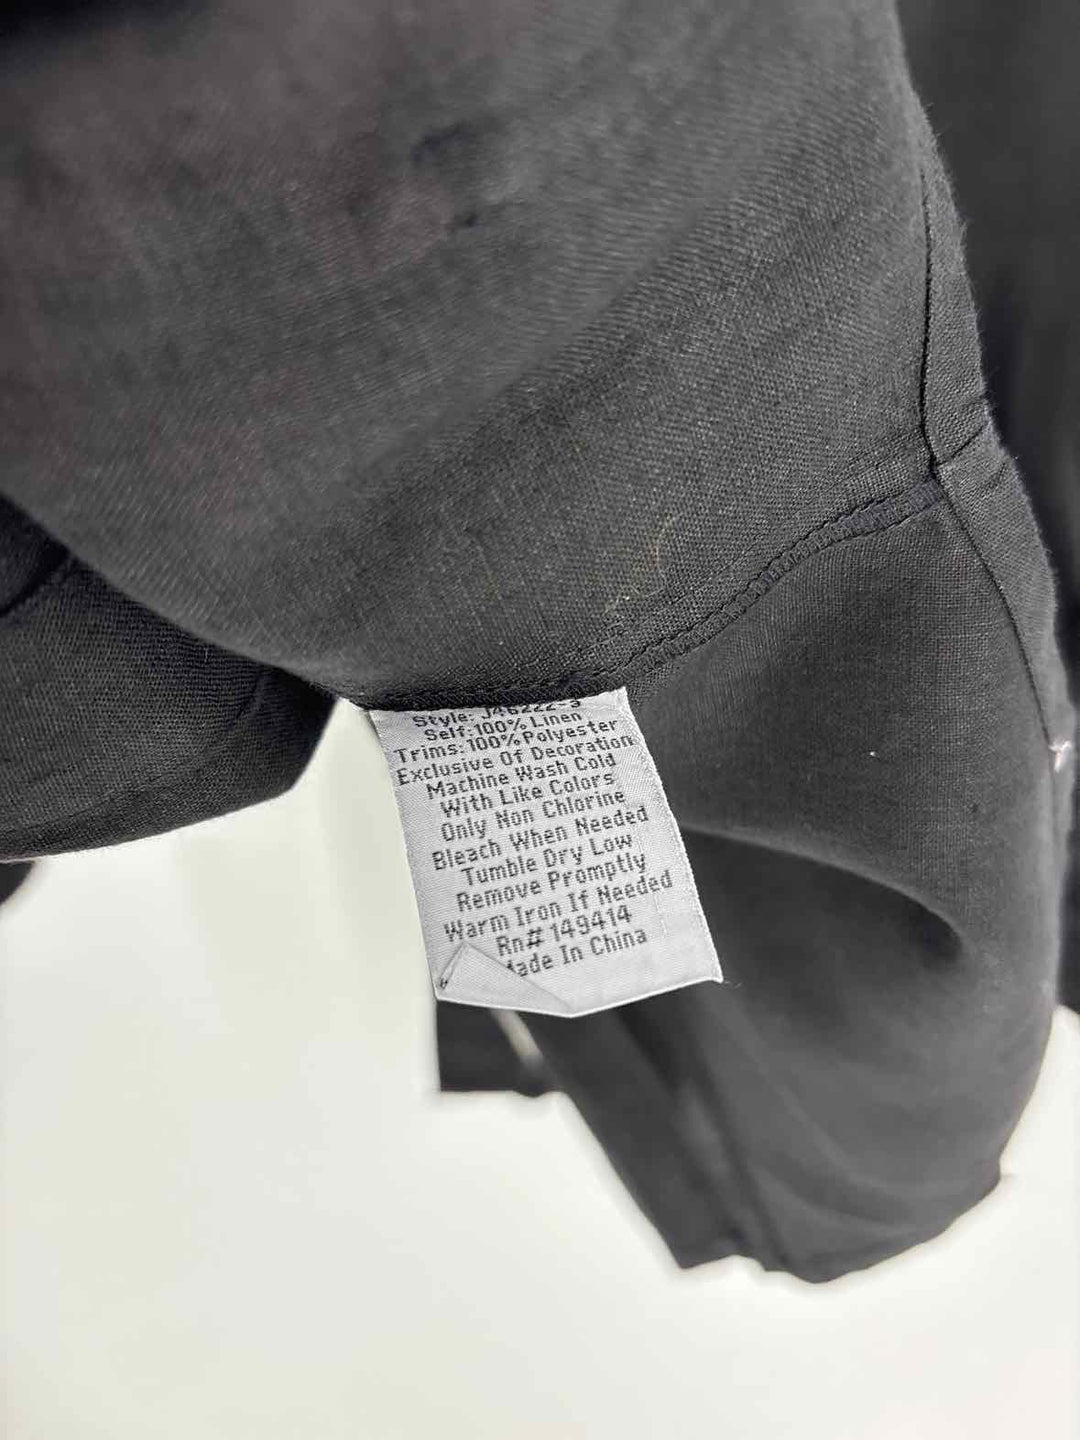 Style: J46222-S
Self:100% Linen
Trims:100% Polyester
Exclusive Of Decoration
Machine Wash Cold
With Like Colors
Only Non Chlorine
Bleach When Needed
Tumble Dry Low
Remove Promptly
Warm Iron If Needed
Rn# 149414
Made In China